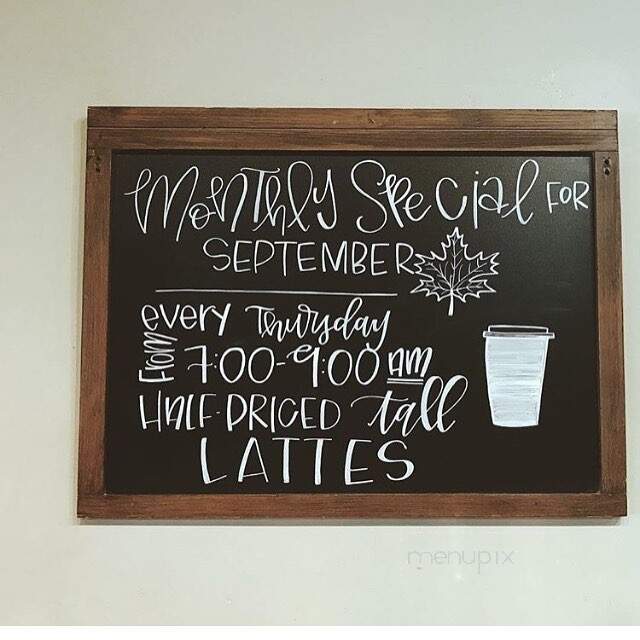 Monthly Special FOR
SEPTEMBER
every Thursday
From 7:00-9:00 AM
HALF-PRICED tall
LATTES
menupix